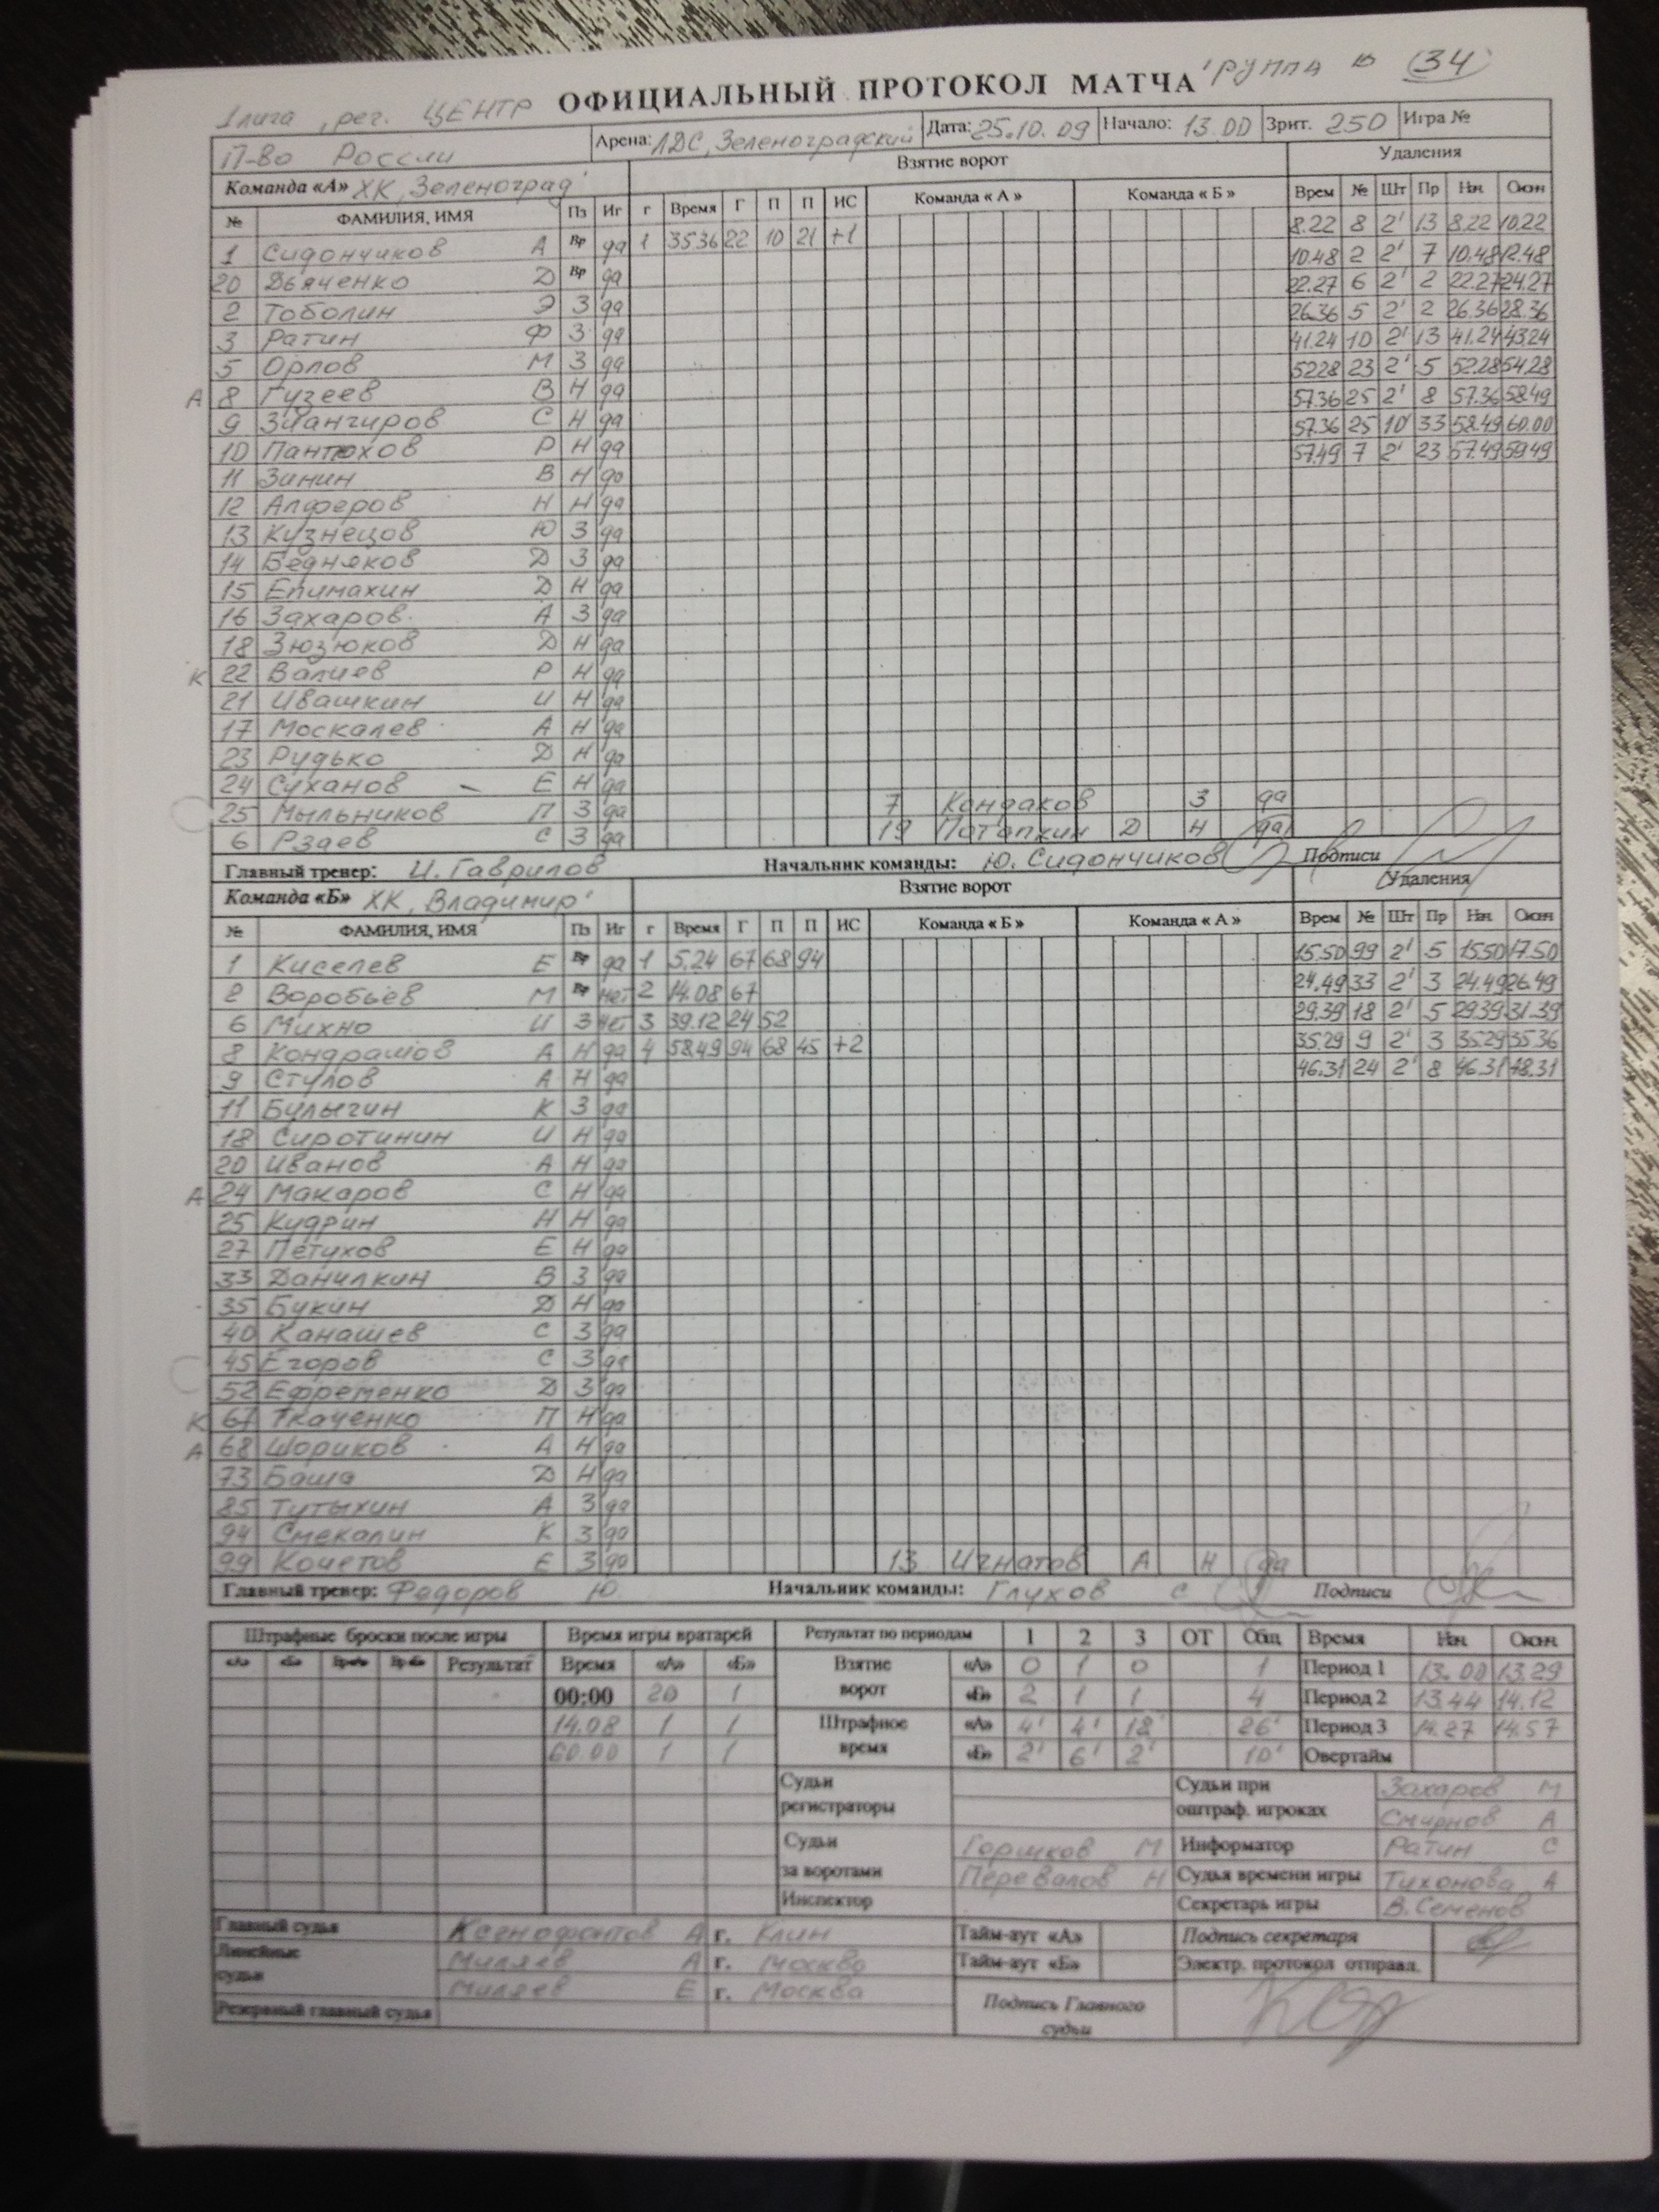 1 лига, рег. ЦЕНТР ОФИЦИАЛЬНЫЙ ПРОТОКОЛ МАТЧА 34
П-во России Арена: ЛДС "Зеленоградский" Дата: 25.10.09 Начало: 13.00 Зрит. 250 Игра №
Команда «А» ХК "Зеленоград" Взятие ворот Удаления
№ ФАМИЛИЯ, ИМЯ Пз Иг г Время Г П П ИС Команда « А » Команда « Б » Врем № Шт Пр Нач Окон
1 Сидончиков А Вр да 1 35.36 22 10 21 +1 8.22 8 2' 13 8.22 10.22
20 Дьяченко Д Вр да 10.48 2 2' 7 10.48 12.48
2 Тоболин Э З да 22.27 6 2' 2 22.27 24.27
3 Ратин Ф З да 26.36 5 2' 2 26.36 28.36
5 Орлов М З да 41.24 10 2' 13 41.24 43.24
А 8 Гузеев В Н да 52.28 23 2' 5 52.28 54.28
9 Зиангиров С Н да 57.36 25 2' 8 57.36 58.49
10 Пантюхов Р Н да 57.36 25 10' 33 58.49 60.00
11 Зинин В Н да 57.49 7 2' 23 57.49 59.49
12 Алферов Н Н да
13 Кузнецов Ю З да
14 Бедняков Д З да
15 Епимахин Д Н да
16 Захаров А З да
18 Зюзюков Д Н да
К 22 Валиев Р Н да
21 Ивашкин И Н да
17 Москалев А Н да
23 Рудько Д Н да
24 Суханов Е Н да
25 Мыльников П З да 7 Кондаков З да
6 Рзаев С З да 19 Потапкин Д Н да
Главный тренер: И. Гаврилов Начальник команды: Ю. Сидончиков Подписи
Команда «Б» ХК "Владимир" Взятие ворот Удаления
№ ФАМИЛИЯ, ИМЯ Пз Иг г Время Г П П ИС Команда « Б » Команда « А » Врем № Шт Пр Нач Окон
1 Киселев Е Вр да 1 5.24 67 68 94 15.50 99 2' 5 15.50 17.50
2 Воробьев М Вр нет 2 14.08 67 24.49 33 2' 3 24.49 26.49
6 Михно И З нет 3 39.12 24 52 29.39 18 2' 5 29.39 31.39
8 Кондрашов А Н да 4 58.49 94 68 45 +2 35.29 9 2' 3 35.29 35.36
9 Стулов А Н да 46.31 24 2' 8 46.31 48.31
11 Булыгин К З да
18 Сиротинин И Н да
20 Иванов А Н да
А 24 Макаров С Н да
25 Кудрин Н Н да
27 Петухов Е Н да
33 Данилкин В З да
35 Букин Д Н да
40 Канашев С З да
45 Егоров С З да
52 Ефременко Д З да
К 67 Ткаченко П Н да
А 68 Шориков А Н да
73 Баша Д Н да
85 Тутыхин А З да
94 Смекалин К З да
99 Кочетов Е З да 13 Игнатов А Н да
Главный тренер: Федоров Ю. Начальник команды: Глухов С Подписи
Штрафные броски после игры Время игры вратарей Результат по периодам 1 2 3 ОТ Общ Время Нач. Оконч.
«А» «Б» Вр«А» Вр«Б» Результат Время «А» «Б» Взятие ворот «А» 0 1 0 1 Период 1 13.00 13.29
00:00 20 1 «Б» 2 1 1 4 Период 2 13.44 14.12
14.08 1 1 Штрафное время «А» 4' 4' 18' 26' Период 3 14.27 14.57
60.00 1 1 «Б» 2' 6' 2' 10' Овертайм
Судьи регистраторы Судьи при оштраф. игроках Захаров М
Смирнов А
Судьи за воротами Горшков М Информатор Ратин С
Перевалов Н Судья времени игры Тихонова А
Инспектор Секретарь игры В. Семенов
Главный судья Ксенофонтов А г. Клин Тайм-аут «А» Подпись секретаря
Линейные судьи Миляев А г. Москва Тайм-аут «Б» Электр. протокол отправл.
Миляев Е г. Москва Подпись Главного судьи
Резервный главный судья